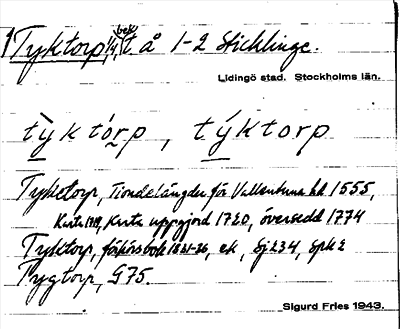 Tyktorp, t. å 1-2 Sticklinge.
Lidingö stad. Stockholms län.
tỳktórp, týktorp
Tyketorp, Tiondelängder för Vallentuna hd 1555,
Karta 1719, Karta uppgjord 1720, översedd 1774
Tyktorp, förhörsbok 1821-26, ek, Sj234, Spk2
Tygtorp, G75.
Sigurd Fries 1943.